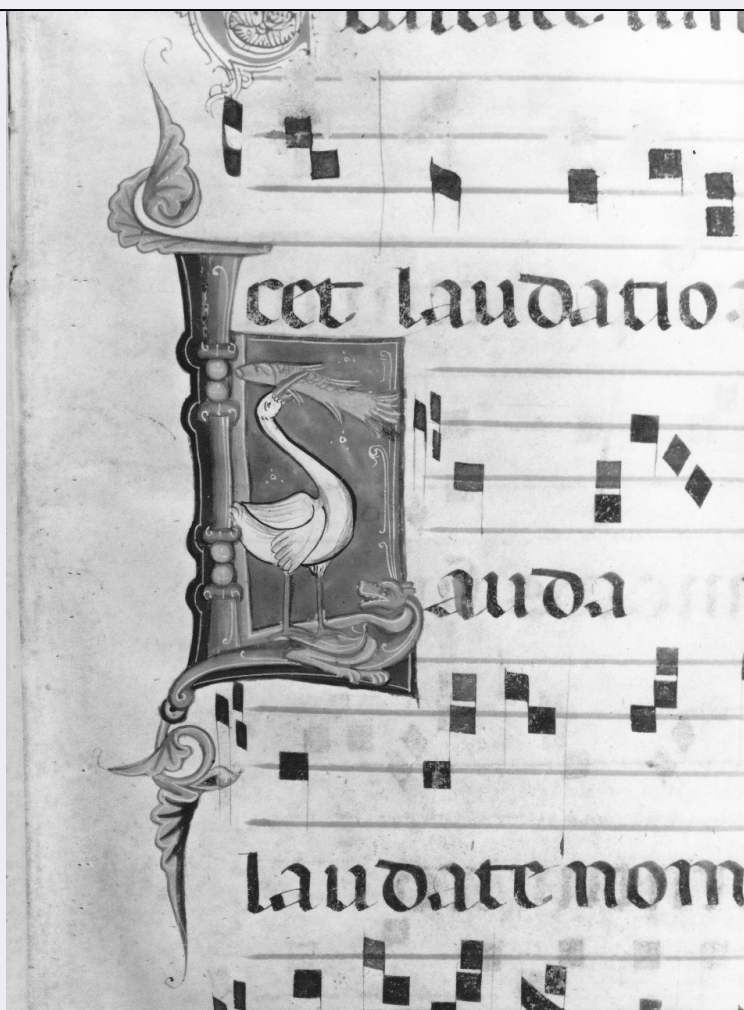 cet laudatio
Lauda
laudate nom